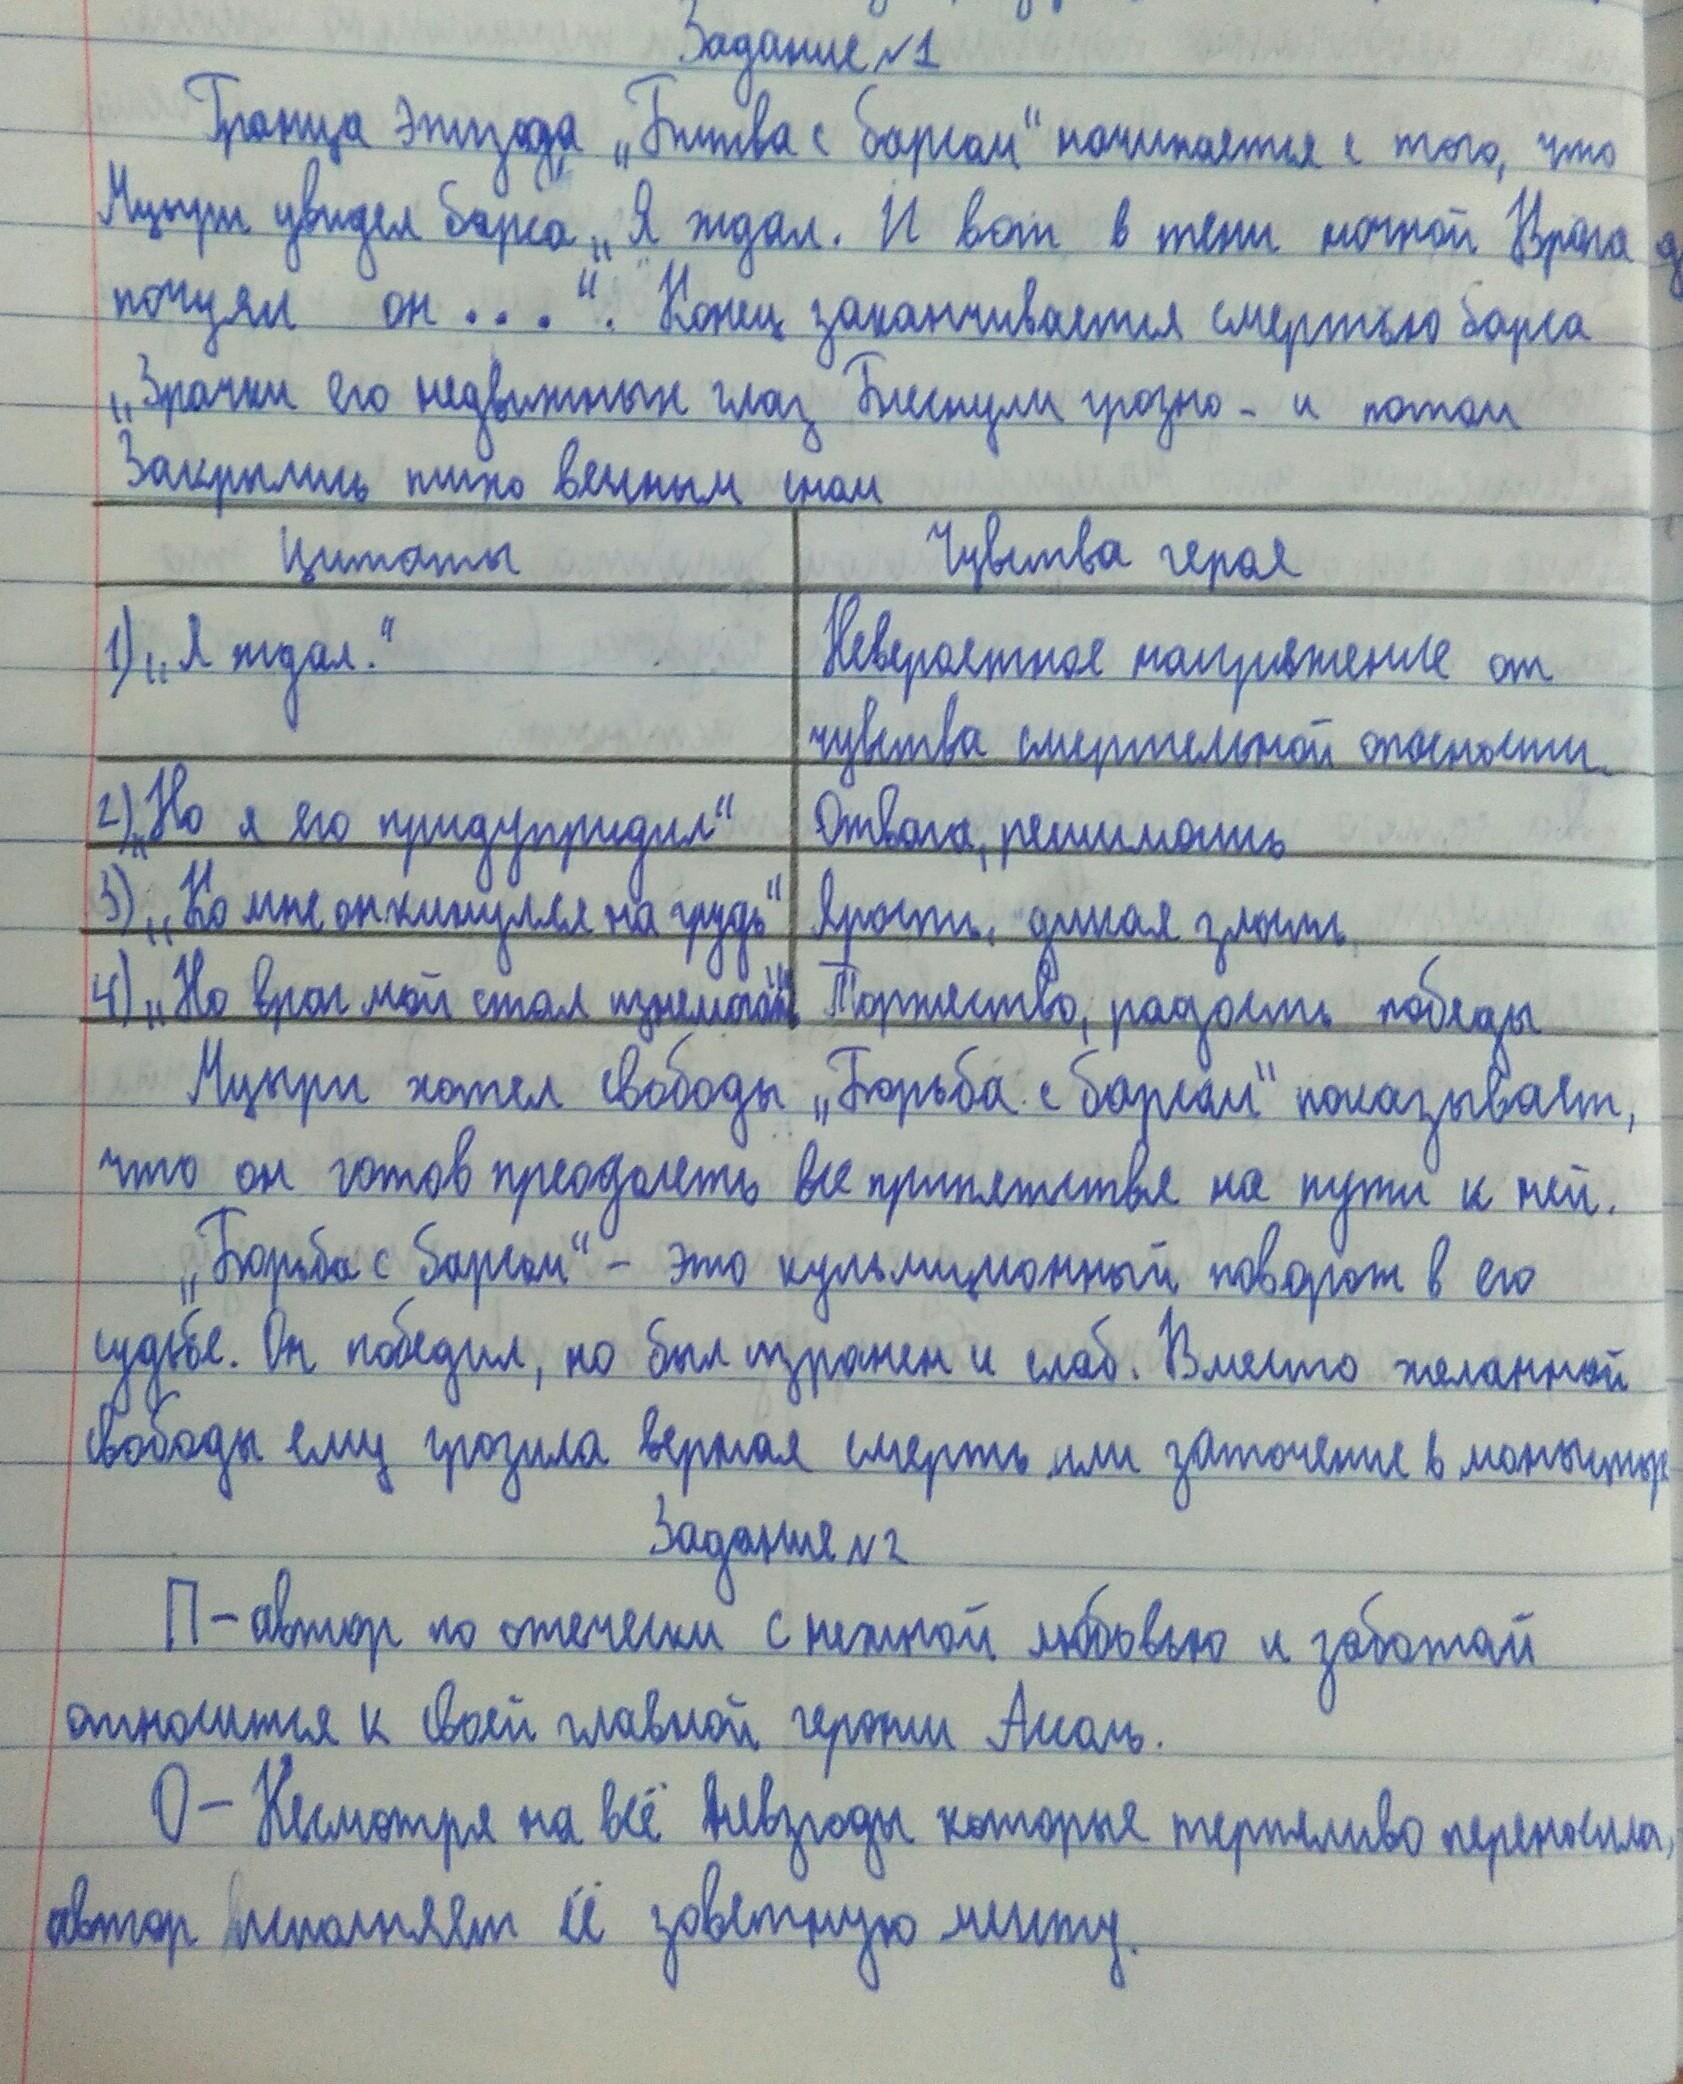 Задание №1
Граница эпизода „Битва с барсом“ начинается с того, что
Мцыри увидел барса „Я ждал. И вот в тени ночной Врага
почуял он . . .“. Конец заканчивается смертью барса
„Зрачки его недвижных глаз Блеснули грозно - и потом
Закрылись тихо вечным сном
Цитаты Чувства героя
1) „Я ждал.“ Невероятное напряжение от
чувства смертельной опасности.
2) „Но я его придупридил“ Отвага, решимость
3) „Ко мне он кинулся на грудь“ Ярость, дикая злость
4) „Но враг мой стал изнемогать“ Торжество, радость победы
Мцыри хотел свободы „Борьба с барсом“ показывает,
что он готов преодолеть все припятствие на пути к ней.
„Борьба с барсом“ - это кульмиционный поворот в его
судьбе. Он победил, но был изранен и слаб. Вместо желанной
свободы ему грозила верная смерть или заточение в
Задание №2
П - автор по отечески с нежной любовью и заботай
относится к своей главной герони Ассоль.
О - Несмотря на всё невзгоды которые терпяливо переносила,
автор исполняет её заветную мечту.